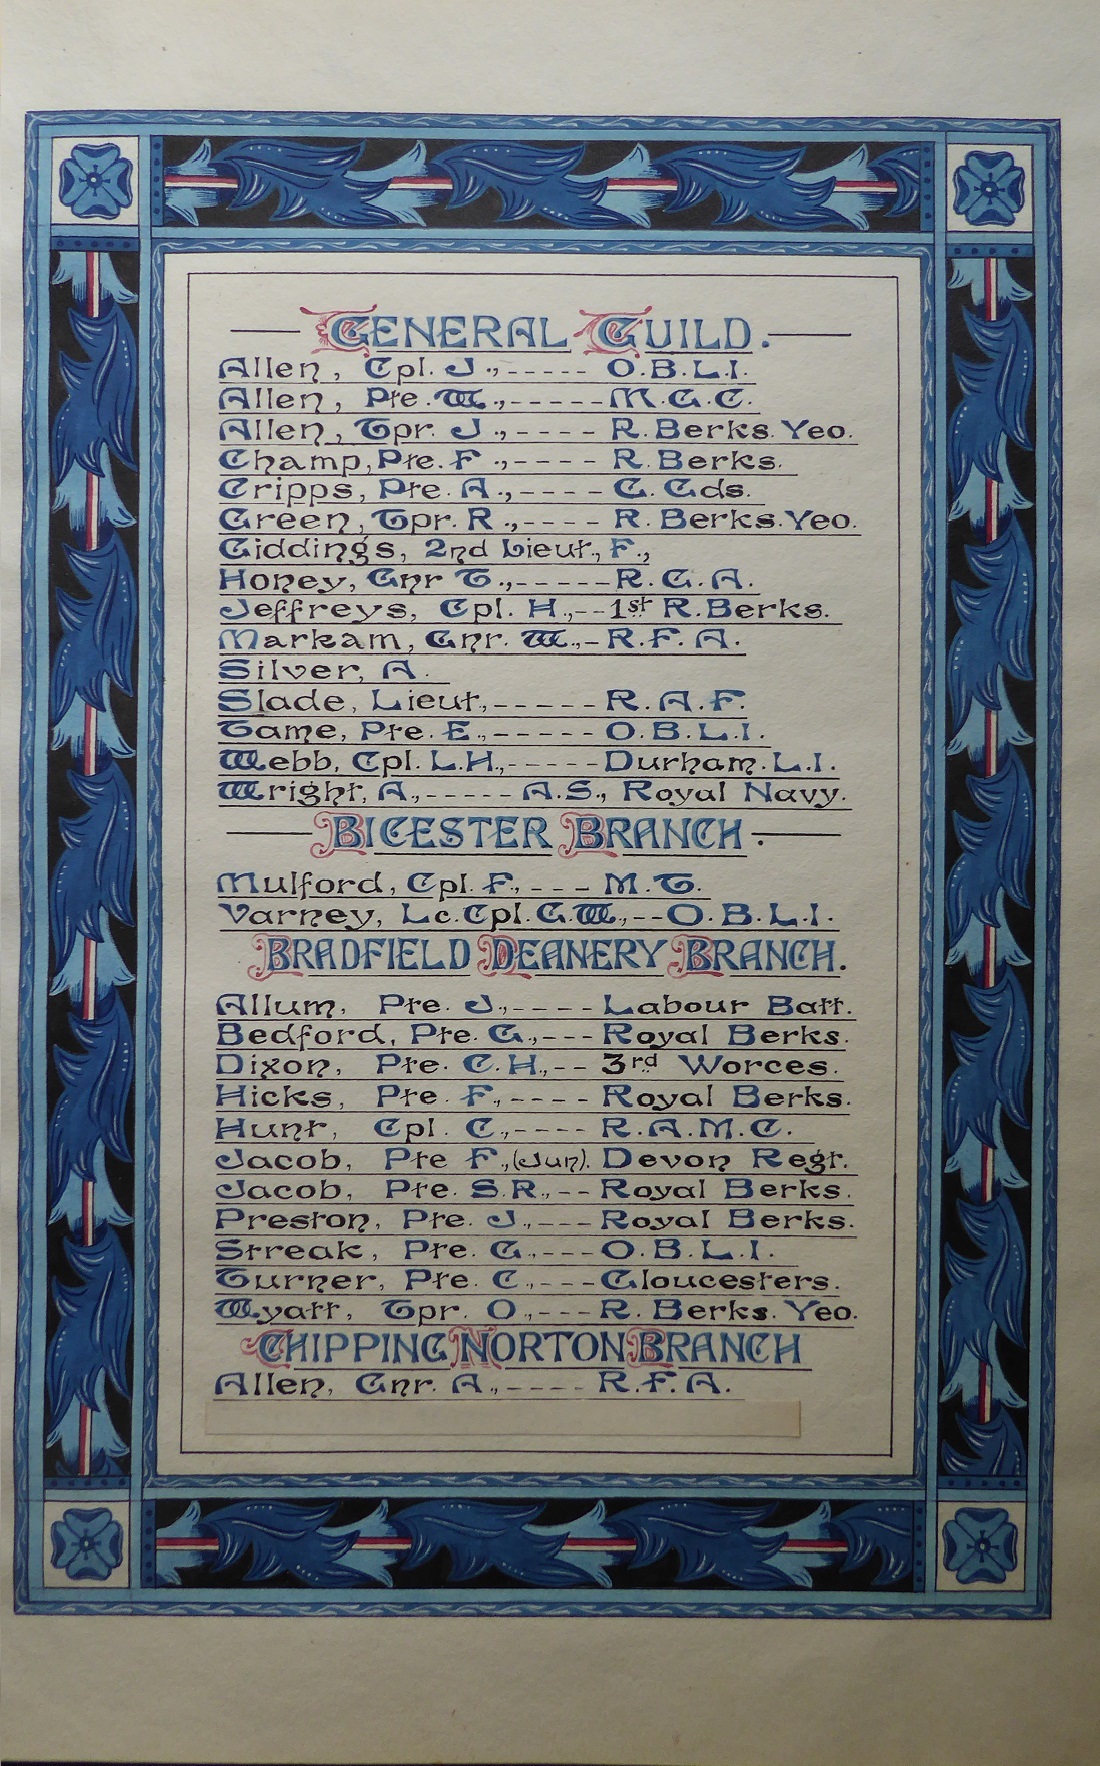 GENERAL GUILD.
Allen, Cpl. J., ----- O.B.L.I.
Allen, Pte. W., ----- M.G.C.
Allen, Tpr. J., ---- R. Berks. Yeo.
Champ, Pte. F., ---- R. Berks.
Cripps, Pte. A., ---- G. Gds.
Green, Tpr. R., ---- R. Berks. Yeo.
Giddings, 2nd Lieut., F.,
Honey, Gnr T., ----- R.G.A.
Jeffreys, Cpl. H., -- 1st R. Berks.
Markam, Gnr. W., - R.F.A.
Silver, A.
Slade, Lieut., ----- R.A.F.
Tame, Pte. E., ----- O.B.L.I.
Webb, Cpl. L.H., ----- Durham. L.I.
Wright, A., ----- A.S., Royal Navy.
BICESTER BRANCH.
Mulford, Cpl. F., --- M.T.
Varney, Lc. Cpl. G.W., -- O.B.L.I.
BRADFIELD DEANERY BRANCH.
Allum, Pte. J., ---- Labour Batt.
Bedford, Pte. G., --- Royal Berks.
Dixon, Pte. C.H., -- 3rd Worces.
Hicks, Pte. F., ---- Royal Berks.
Hunt, Cpl. C., ---- R.A.M.C.
Jacob, Pte F., (Jun). Devon Regt.
Jacob, Pte. S.R., -- Royal Berks.
Preston, Pte. J., --- Royal Berks.
Streak, Pte. G., --- O.B.L.I.
Turner, Pte. C., --- Gloucesters.
Wyatt, Tpr. O., --- R. Berks. Yeo.
CHIPPING NORTON BRANCH
Allen, Gnr. A., ---- R.F.A.